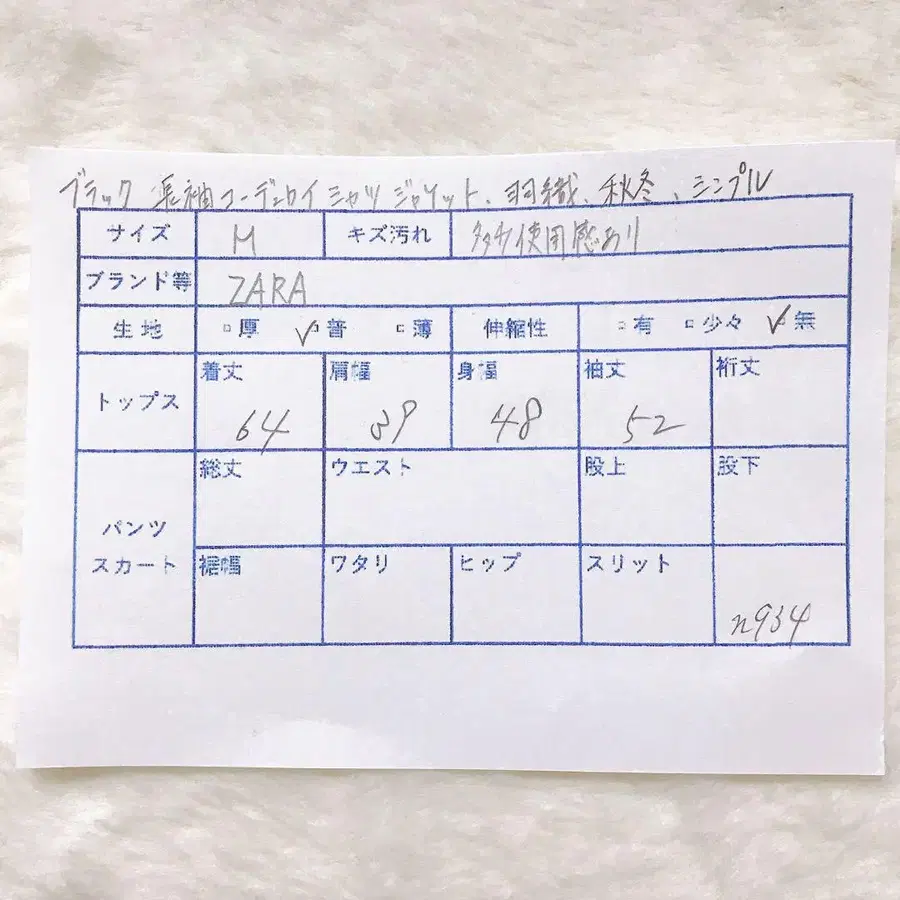 ブラック 長袖コーデュロイシャツジャケット、羽織、秋冬、シンプル
サイズ M キズ汚れ 多少使用感あり
ブランド等 ZARA
生地 厚 ✓普 薄 伸縮性 有 少々 ✓無
トップス 着丈 肩幅 身幅 袖丈 裄丈
64 39 48 52
総丈 ウエスト 股上 股下
パンツ
スカート 裾幅 ワタリ ヒップ スリット
n934